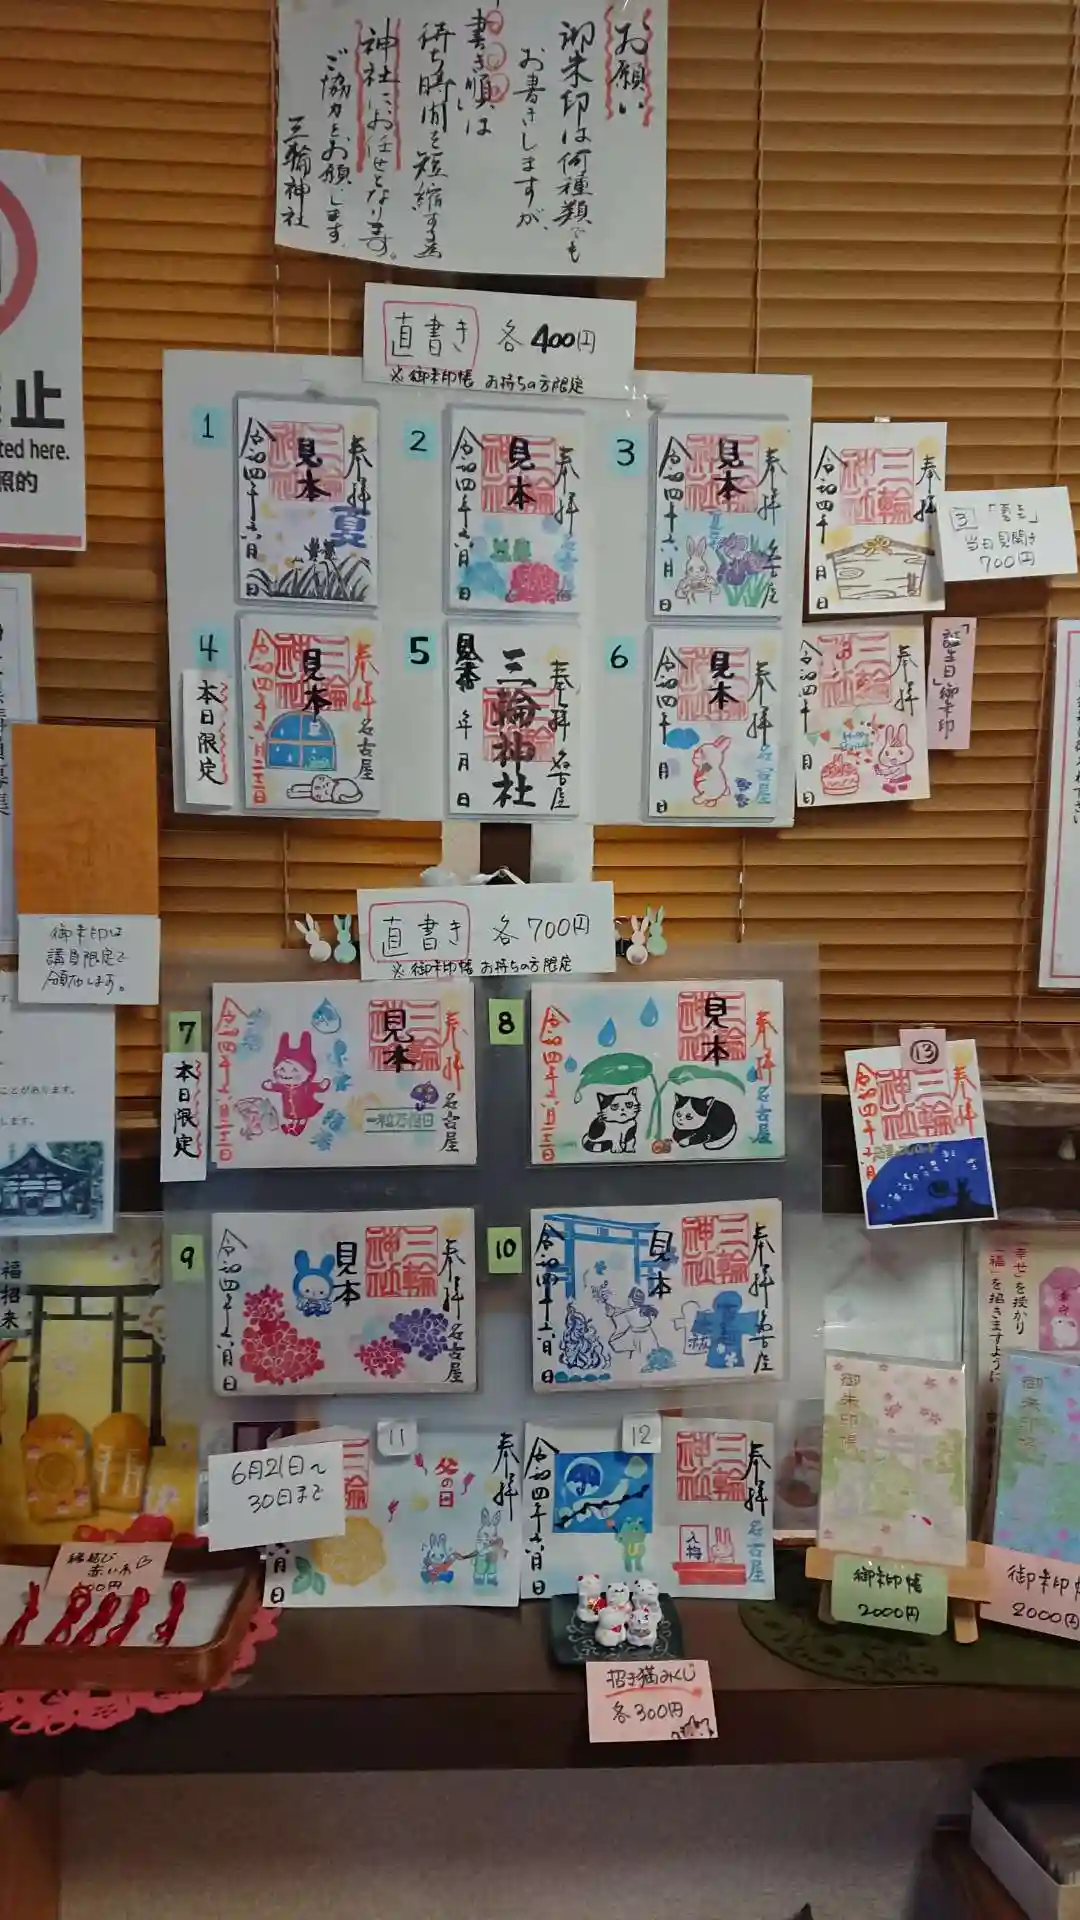 お願い
御朱印は何種類でも
お書きしますが、
書き順は
待ち時間を短縮する為
神社にお任せとなります。
ご協力をお願いします。
三輪神社
直書き 各400円
※御朱印帳 お持ちの方限定
止
ted here.
照的
1
奉拝
見本
夏
令和四年六月 日
2
奉拝
見本
令和四年六月 日
3
奉拝
見本
名古屋
令和四年六月 日
奉拝
三輪神社
令和四年 月 日
3
当日見開き
700円
4
本日限定
奉拝
見本
名古屋
5
奉拝 名古屋
三輪神社
見本
年 月 日
6
奉拝
見本
名古屋
令和四年 月 日
奉拝
令和四年 月 日
「誕生日」御朱印
御朱印は
講員限定で
頒布します。
直書き 各700円
※御朱印帳 お持ちの方限定
7
本日限定
奉拝
名古屋
三輪神社
見本
一粒万倍日
8
奉拝
名古屋
三輪神社
見本
13
奉拝
三輪神社
令和四年六月
9
奉拝
名古屋
三輪神社
見本
令和四年六月 日
10
奉拝 名古屋
三輪神社
見本
令和四年六月 日
ことがあります。
します。
福招来
「幸せ」を授かり
「福」を招きますように
11
6月21日～
30日まで
奉拝
父の日
月 日
12
奉拝
名古屋
三輪神社
入梅
令和四年六月 日
御朱印帳
御朱印帳
2000円
御朱印帳
御朱印帳
2000円
縁結び
赤い糸
招き猫みくじ
各300円